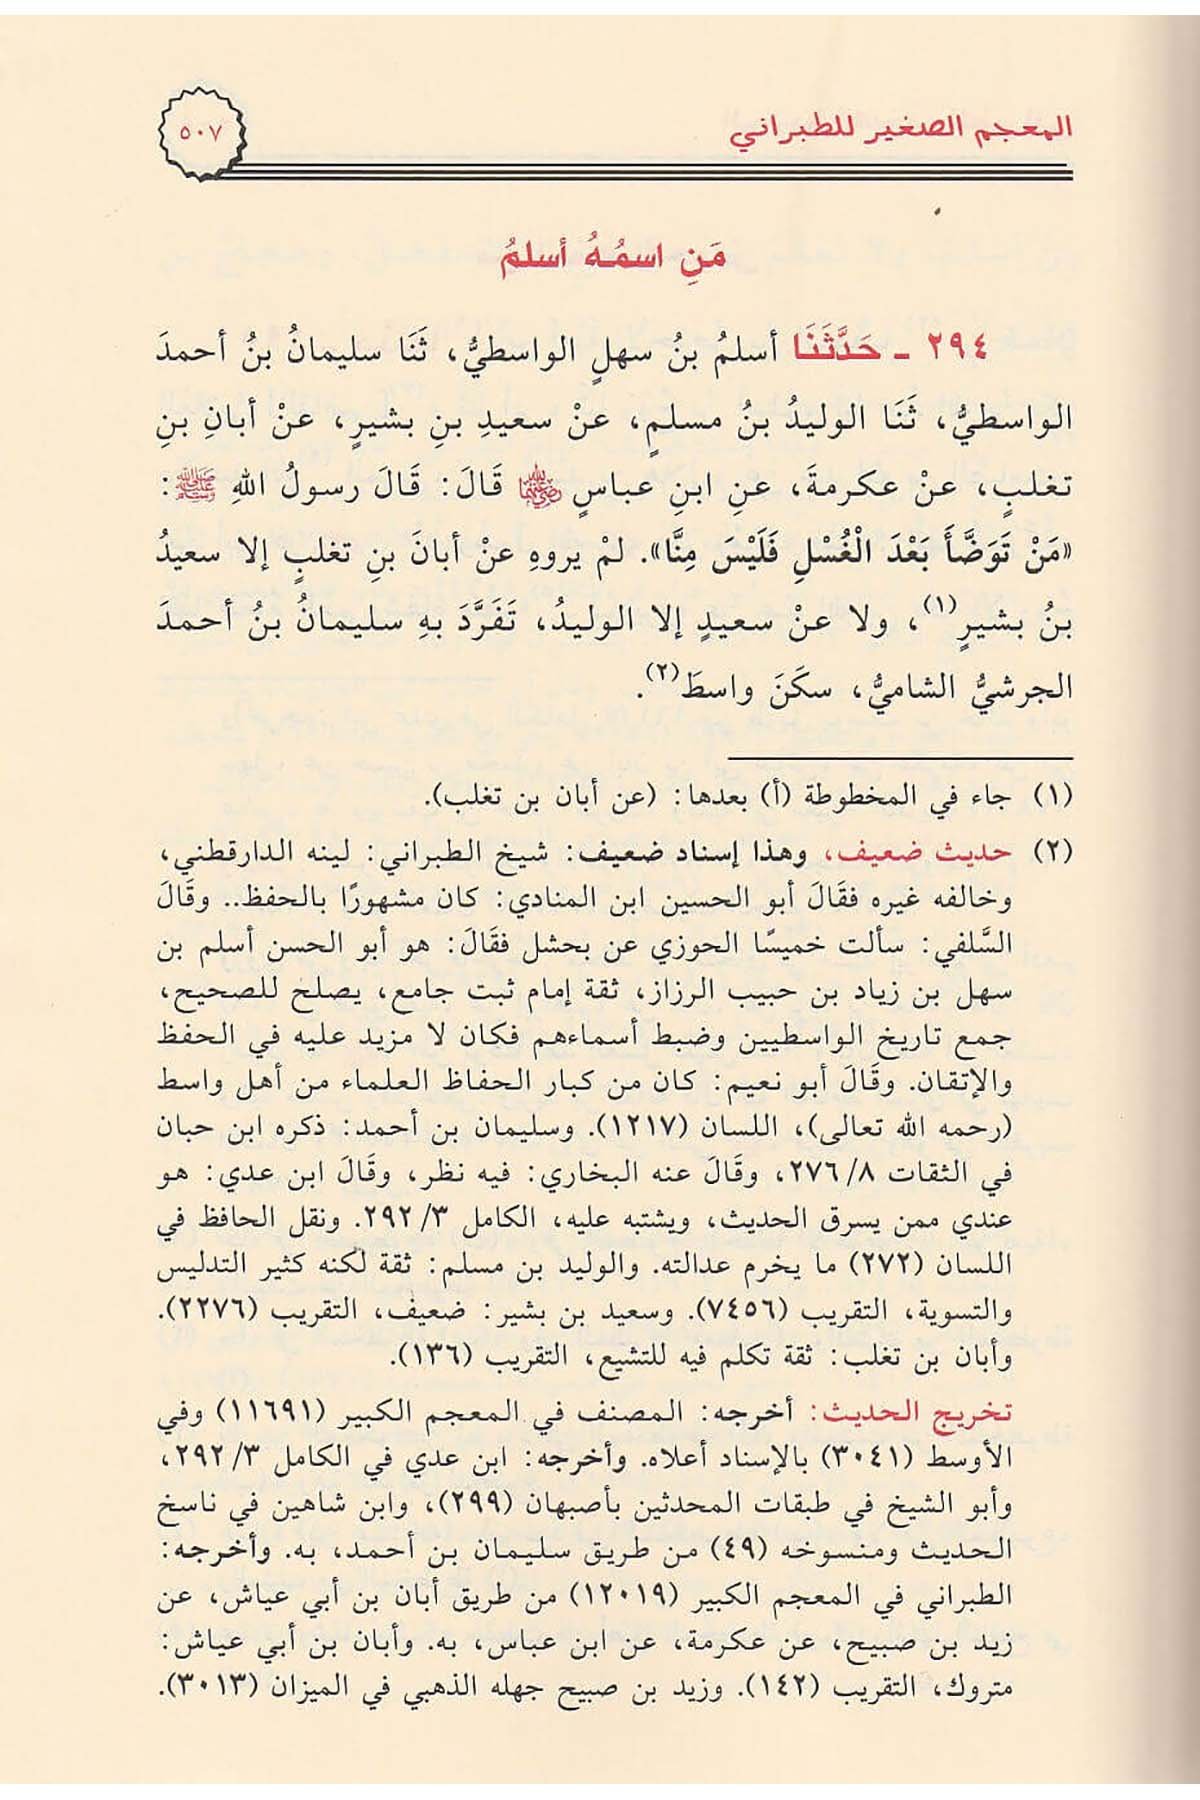 المعجم الصغير للطبراني
٥٠٧
مَنِ اسمُهُ أسلمُ
٢٩٤ ـ حَدَّثَنَا أسلمُ بنُ سهلٍ الواسطيُّ، ثَنَا سليمانُ بنُ أحمدَ
الواسطيُّ، ثَنَا الوليدُ بنُ مسلمٍ، عنْ سعيدِ بنِ بشيرٍ، عنْ أبانِ بنِ
تغلبٍ، عنْ عكرمةَ، عنِ ابنِ عباسٍ رضي الله عنهما قَالَ: قَالَ رسولُ اللهِ ﷺ:
«مَنْ تَوَضَّأَ بَعْدَ الْغُسْلِ فَلَيْسَ مِنَّا». لمْ يروهِ عنْ أبانَ بنِ تغلبٍ إلا سعيدُ
بنُ بشيرٍ(١)، ولا عنْ سعيدٍ إلا الوليدُ، تَفَرَّدَ بهِ سليمانُ بنُ أحمدَ
الجرشيُّ الشاميُّ، سكَنَ واسطَ(٢).
(١) جاء في المخطوطة (أ) بعدها: (عن أبان بن تغلب).
(٢) حديث ضعيف، وهذا إسناد ضعيف: شيخ الطبراني: لينه الدارقطني،
وخالفه غيره فقَالَ أبو الحسين ابن المنادي: كان مشهورًا بالحفظ.. وقَالَ
السَّلفي: سألت خميسًا الحوزي عن بحشل فقَالَ: هو أبو الحسن أسلم بن
سهل بن زياد بن حبيب الرزاز، ثقة إمام ثبت جامع، يصلح للصحيح،
جمع تاريخ الواسطيين وضبط أسماءهم فكان لا مزيد عليه في الحفظ
والإتقان. وقَالَ أبو نعيم: كان من كبار الحفاظ العلماء من أهل واسط
(رحمه الله تعالى)، اللسان (١٢١٧). وسليمان بن أحمد: ذكره ابن حبان
في الثقات ٨/ ٢٧٦، وقَالَ عنه البخاري: فيه نظر، وقَالَ ابن عدي: هو
عندي ممن يسرق الحديث، ويشتبه عليه، الكامل ٣/ ٢٩٢. ونقل الحافظ في
اللسان (٢٧٢) ما يخرم عدالته. والوليد بن مسلم: ثقة لكنه كثير التدليس
والتسوية، التقريب (٧٤٥٦). وسعيد بن بشير: ضعيف، التقريب (٢٢٧٦).
وأبان بن تغلب: ثقة تكلم فيه للتشيع، التقريب (١٣٦).
تخريج الحديث: أخرجه: المصنف في المعجم الكبير (١١٦٩١) وفي
الأوسط (٣٠٤١) بالإسناد أعلاه. وأخرجه: ابن عدي في الكامل ٣/ ٢٩٢،
وأبو الشيخ في طبقات المحدثين بأصبهان (٢٩٩)، وابن شاهين في ناسخ
الحديث ومنسوخه (٤٩) من طريق سليمان بن أحمد، به. وأخرجه:
الطبراني في المعجم الكبير (١٢٠١٩) من طريق أبان بن أبي عياش، عن
زيد بن صبيح، عن عكرمة، عن ابن عباس، به. وأبان بن أبي عياش:
متروك، التقريب (١٤٢). وزيد بن صبيح جهله الذهبي في الميزان (٣٠١٣).